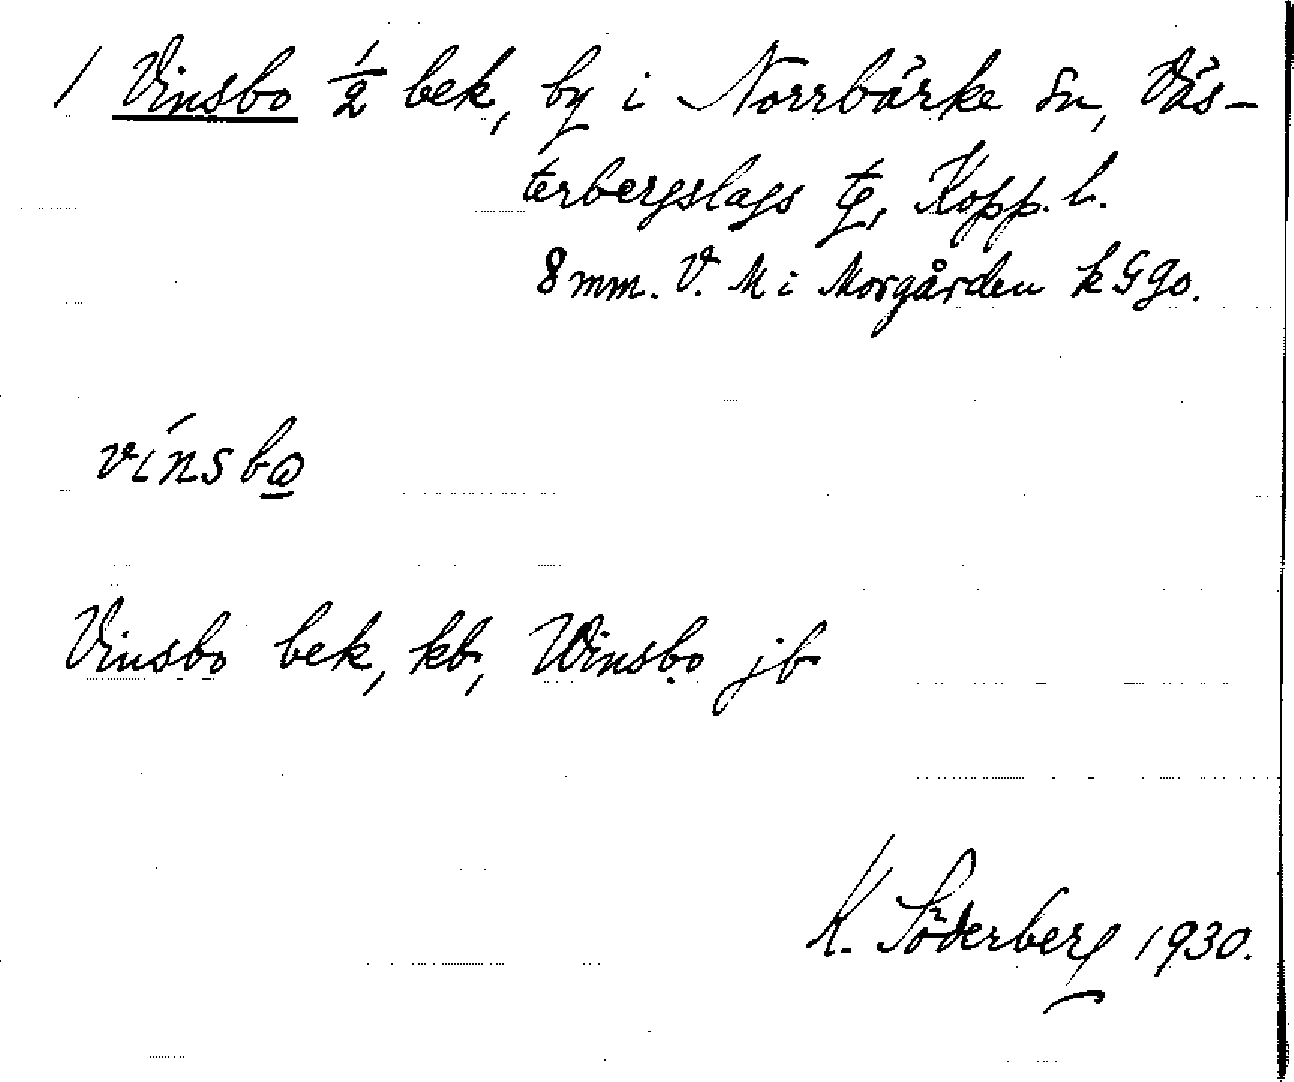 1 Vinsbo 1/2 bek, by i Norrbärke sn, Väs-
terbergslags tg, Kopp. l.
8 mm. V. M i Morgården k G go.
vínsbo
Vinsbo bek, kb, Winsbo jb
K. Söderberg 1930.